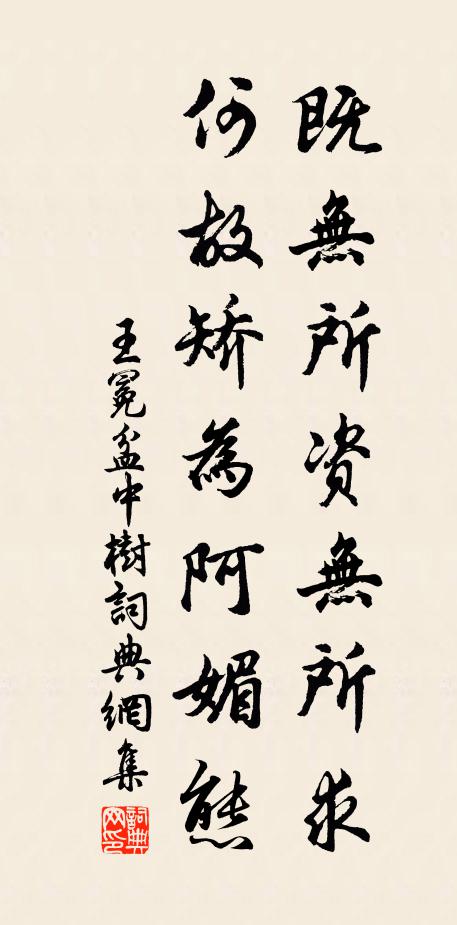 既無所資無所求
何故矯為阿媚態
王冕盆中樹詞典網集
詞典網印